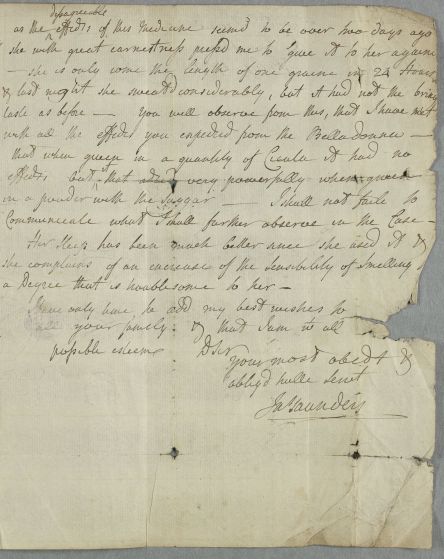 disagreeable
as the effects of this Medicine seem'd to be over two days ago
she with great earnestness press'd me to give it to her againe
— she is only come the length of one graine in 24 Hours
& last night she sweat'd considerably, but it had not the briny
taste as before — You will observe from this, that I have mett
with all the effects you expected from the Belladonna —
that when given in a quantity of Cicuta it had no
effects but that very powerfully when given
in a pouder with the Suggar — I shall not faile to
Communicate what I shall farther observe in the Case —
Her Sleep has been much better since she used it &
she complains of an encrease of the sensibility of Smelling to
a Degree that is troublesome to her —
I have only time to add my best wishes to
all your family & that I am wt all
possible esteem DSir
your most obedt &
oblig'd hulle Servt
Jas Saunders